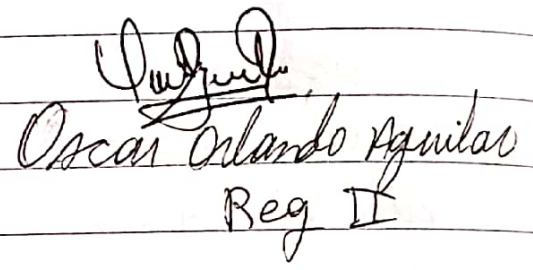 Oscar Orlando Aguilar
Reg II